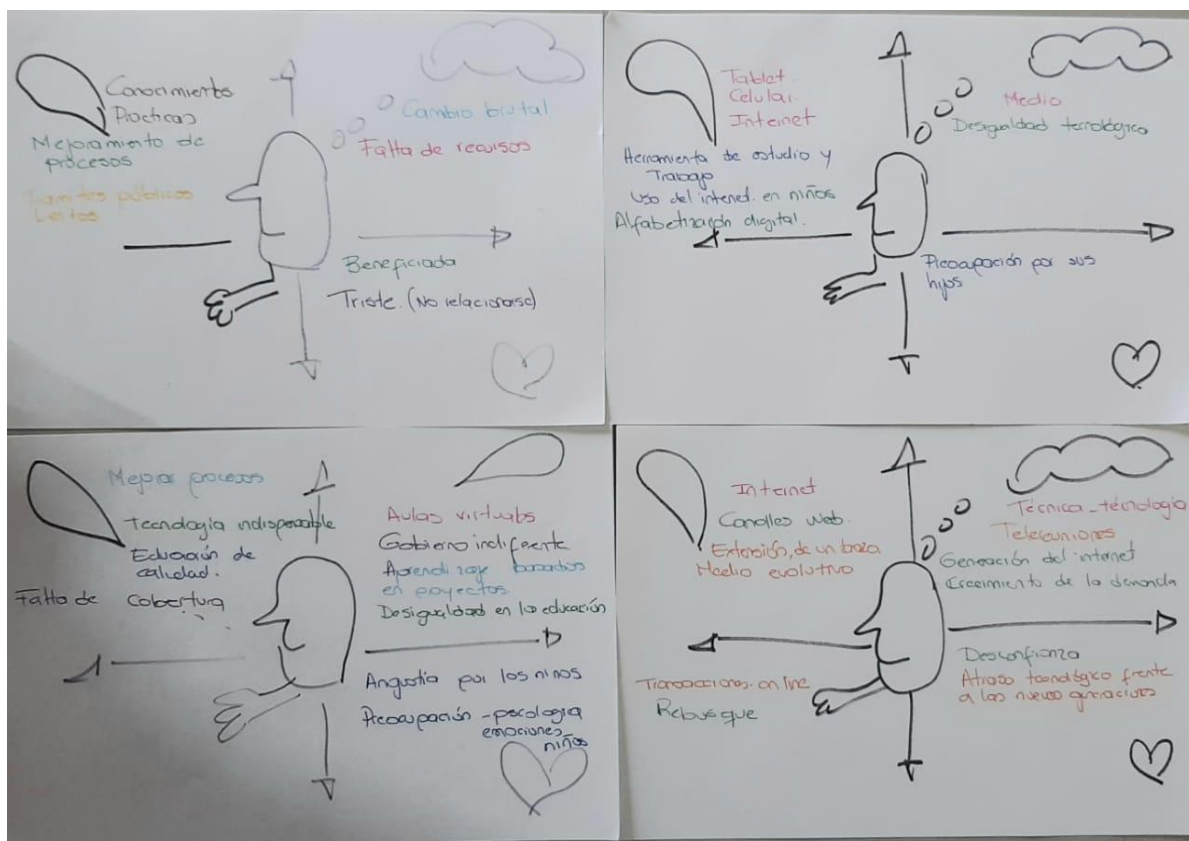 Conocimiento
Practicas
Mejoramiento de
procesos
Tramites públicos
Lentos
Cambio brutal
Falta de recursos
Beneficiada
Triste. (No relacionarse)
Tablet.
Celular.
Internet
Herramienta de estudio y
Trabajo
Uso del internet. en niños
Alfabetización digital.
Medio
Desigualdad tecnológica
Preocupación por sus
hijos
Mejorar procesos
Tecnología indispensable
Educación de
calidad.
Falta de cobertura
Aulas virtuales
Gobierno indiferente
Aprendizaje basados
en proyectos
Desigualdad en la educación
Angustia por los niños
Preocupación - psicologia
emociones
niños
Internet
Canalles web.
Extensión, de un brazo
Medio evolutivo
Transacciones. on line
Rebusque
Técnica - técnología
Telereuniones
Generación del internet
Crecimiento de la demanda
Desconfianza
Atraso tecnológico frente
a las nuevas generaciones